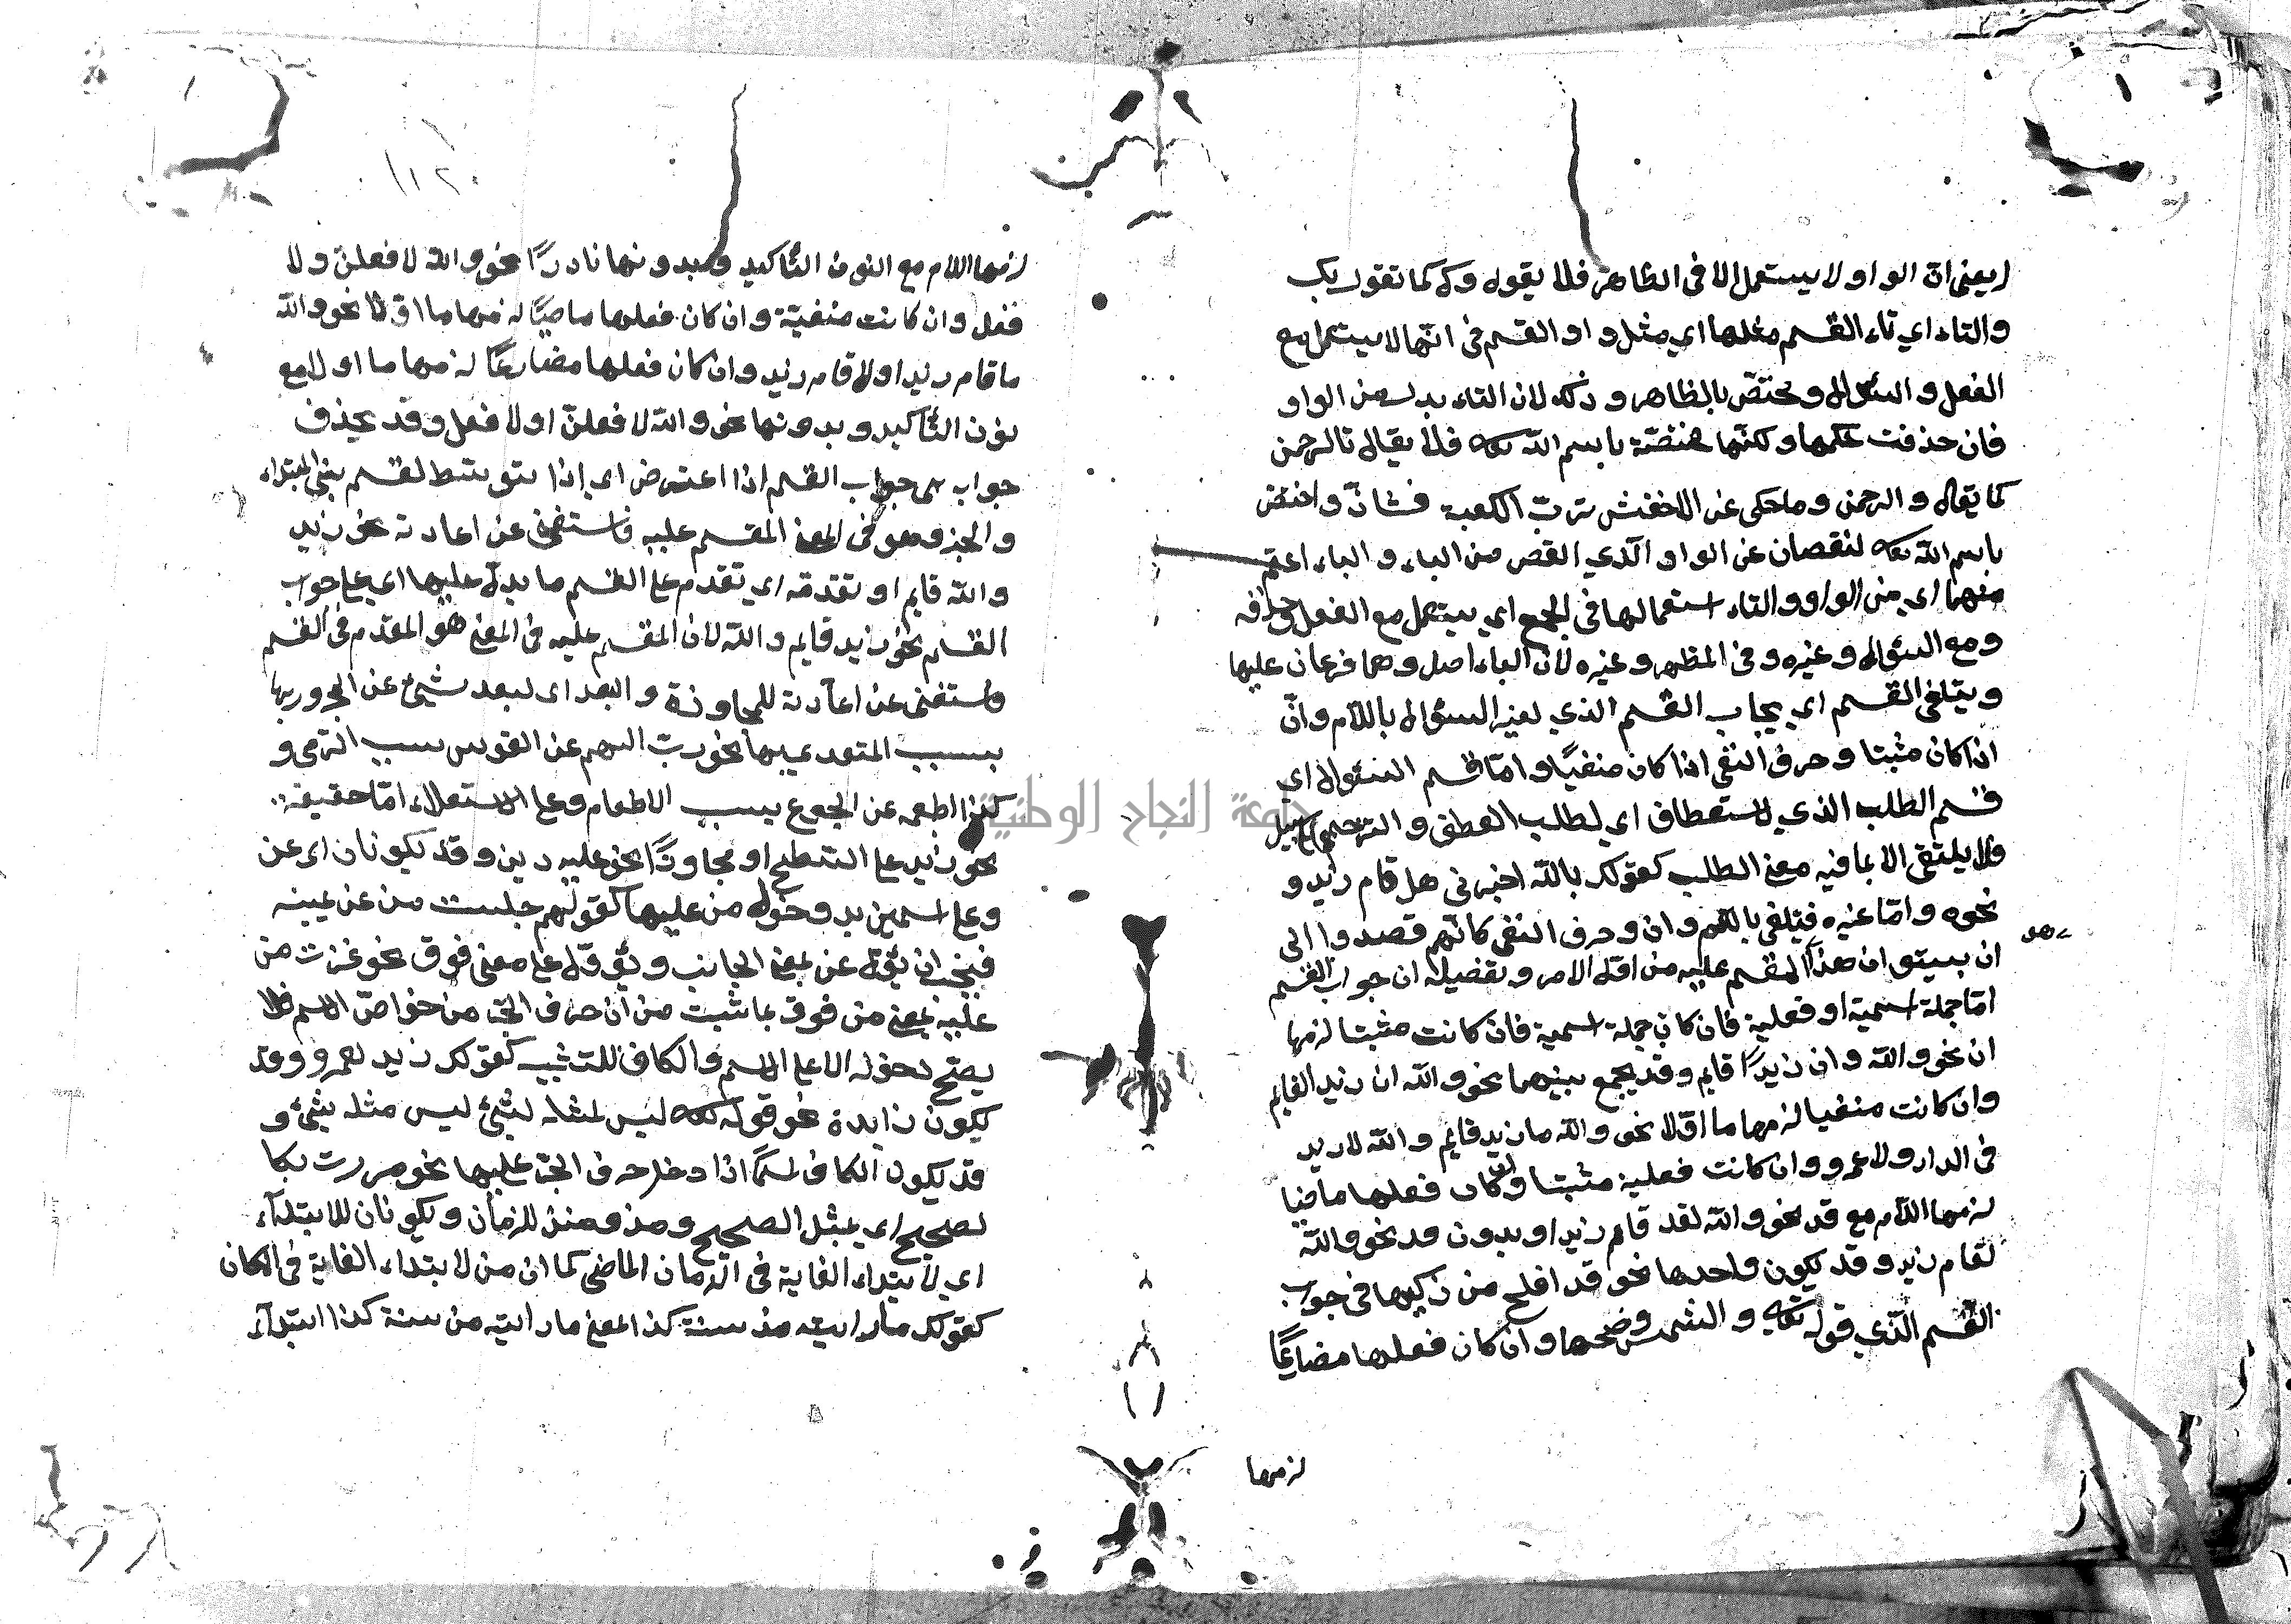 ايعنى ان الواو لا يستعمل الا فى الظاهر فلا يقول وك كما تقول بك
والتاء اي تاء القسم مثلها اي مثل واو القسم فى انها لا يستعمل مع
الفعل و السؤال و مختص بالظاهر و ذلك لان التاء بدل من الواو
فان حذفت حكمها ولكنها مختصة باسم الله تعه فلا يقال تالرحمن
كما يقال و الرحمن و ما حكى عن الاخفش تربّ الكعبة فشاذ و اختص
باسم الله تعه لنقصان عن الواو الذي القص من الباء و الباء اعم
منهما اي من الواو و التاء استعمالها فى الجميع اي يستعمل مع الفعل و حذفه
و مع السؤال و غيره و فى المظهر و غيره لان الباء اصل و هما فرعان عليها
و يتلقى القسم اي يجاب القسم الذي لغير السؤال باللام و انّ
اذا كان مثبتا و حرف النفى اذا كان منفيًا و امّا قسم السؤال اي
قسم الطلب الذي لاستعطاف اي لطلب العطف و الترحم
فلا يلتقى الا بما فيه معنى الطلب كقولك بالله اخبرنى هل قام زيد و
نحوه و امّا غيره فيتلقى باللام و ان و حرف النفى كانهم قصدوا الى
ان بيتوا ان هذا المقسم عليه من اول الامر و تفضيله ان جواب القسم
امّا جملة اسمية او فعلية فان كان جملة اسمية فان كانت مثبتا لزمها
ان نحو والله و ان زيدًا قايم و قد يجمع بينهما نحو والله ان زيد القايم
و ان كانت منفيا لزمها ما او لا نحو والله ما زيد قايم و الله لا زيد
فى الدار و لا عمرو و ان كانت فعلية مثبتا و كان فعلها ماضيا
لزمها اللام مع قد نحو والله لقد قام زيد او بدون قد نحو والله
لقام زيد و قد يكون واحدها نحو قد افلح من زكيها فى جواب
القسم الذي قوله تعه و الشمس وضحها و ان كان فعلها مضارعًا
لزمها
لزمها اللام مع النون التأكيد و بدونها نادرًا نحو والله لافعلن و لا
فعل و ان كانت منفيّة و ان كان فعلها ماضيًا لزمها ما او لا نحو والله
ما قام زيد او لا قام زيد و ان كان فعلها مضارعًا لزمها ما او لا مع
نون التأكيد و بدونها نحو والله لا فعلنّ او لا فعل و قد يحذف
جواب القسم اذا اعترض اى اذا توسط القسم بين المبتداء
و الجز و هو فى المعنى المقسم عليه فاستغنى عن اعادته نحو زيد
والله قايم او تقدمه اي تقدم على القسم ما يدل عليها اي على جواب
القسم نحو زيد قايم والله لان المقسم عليه فى المعنى هو المقدم فى القسم
فاستغنى عن اعادته للمجاوزة و البعد اى لبعد شيئ عن المجرور بها
بسبب المتعد يبها نحو رميت السهم عن القوس بسبب الرمى و
كذا اطعمه عن الجوع بسبب الاطعام و على الاستعلاء امّا حقيقة
نحو زيد على السطح او مجاوزًا نحو عليه دين و قد يكونان اى عن
و على اسمين بدخول من عليها كقولهم جلست من عن يمينه
فيجب ان يؤول عن بمعنى الجانب و يؤوّل على معنى فوق نحو غزت من
عليه بمعنى من فوق بما ثبت من ان حرف الجرّ من خواصّ الاسم فلا
يصحّ دخوله الا على الاسم و الكاف للتشبيه كقولك زيد لعمرو و قد
يكون زايدة نحو قوله تعه ليس كمثله لشئ ليس مثله شئ و
قد يكون الكاف اسمًا اذا دخل حرف الجرّ عليها نحو مررت بكا
لصحيح اي بمثل الصحيح و مذ و منذ للزمان و يكونان للابتداء
اي لابتداء الغاية فى الزمان الماضى كما ان من لابتداء الغاية فى المكان
كقولك ما رايته مذ سنة كذا المعنى ما رايته من سنة كذا ابتداء
جامعة النجاح الوطنية